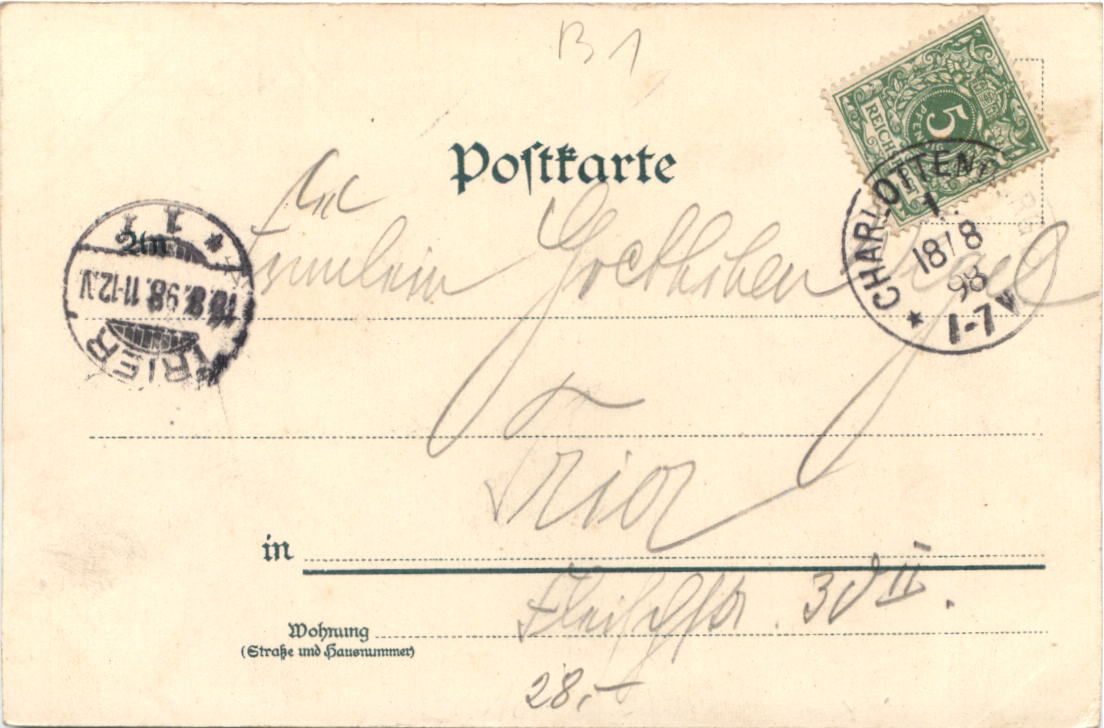 B 1
5
PFENNIG
REICHSPOST
Postkarte
An
Fräulein
CHARLOTTENBURG
1.
18/8
98
1-7 V
TRIER
18.8.98. 11-12.N.
* 1 1
Trier
in
Fleischstr. 30 II.
Wohnung
(Straße und Hausnummer)
28,-